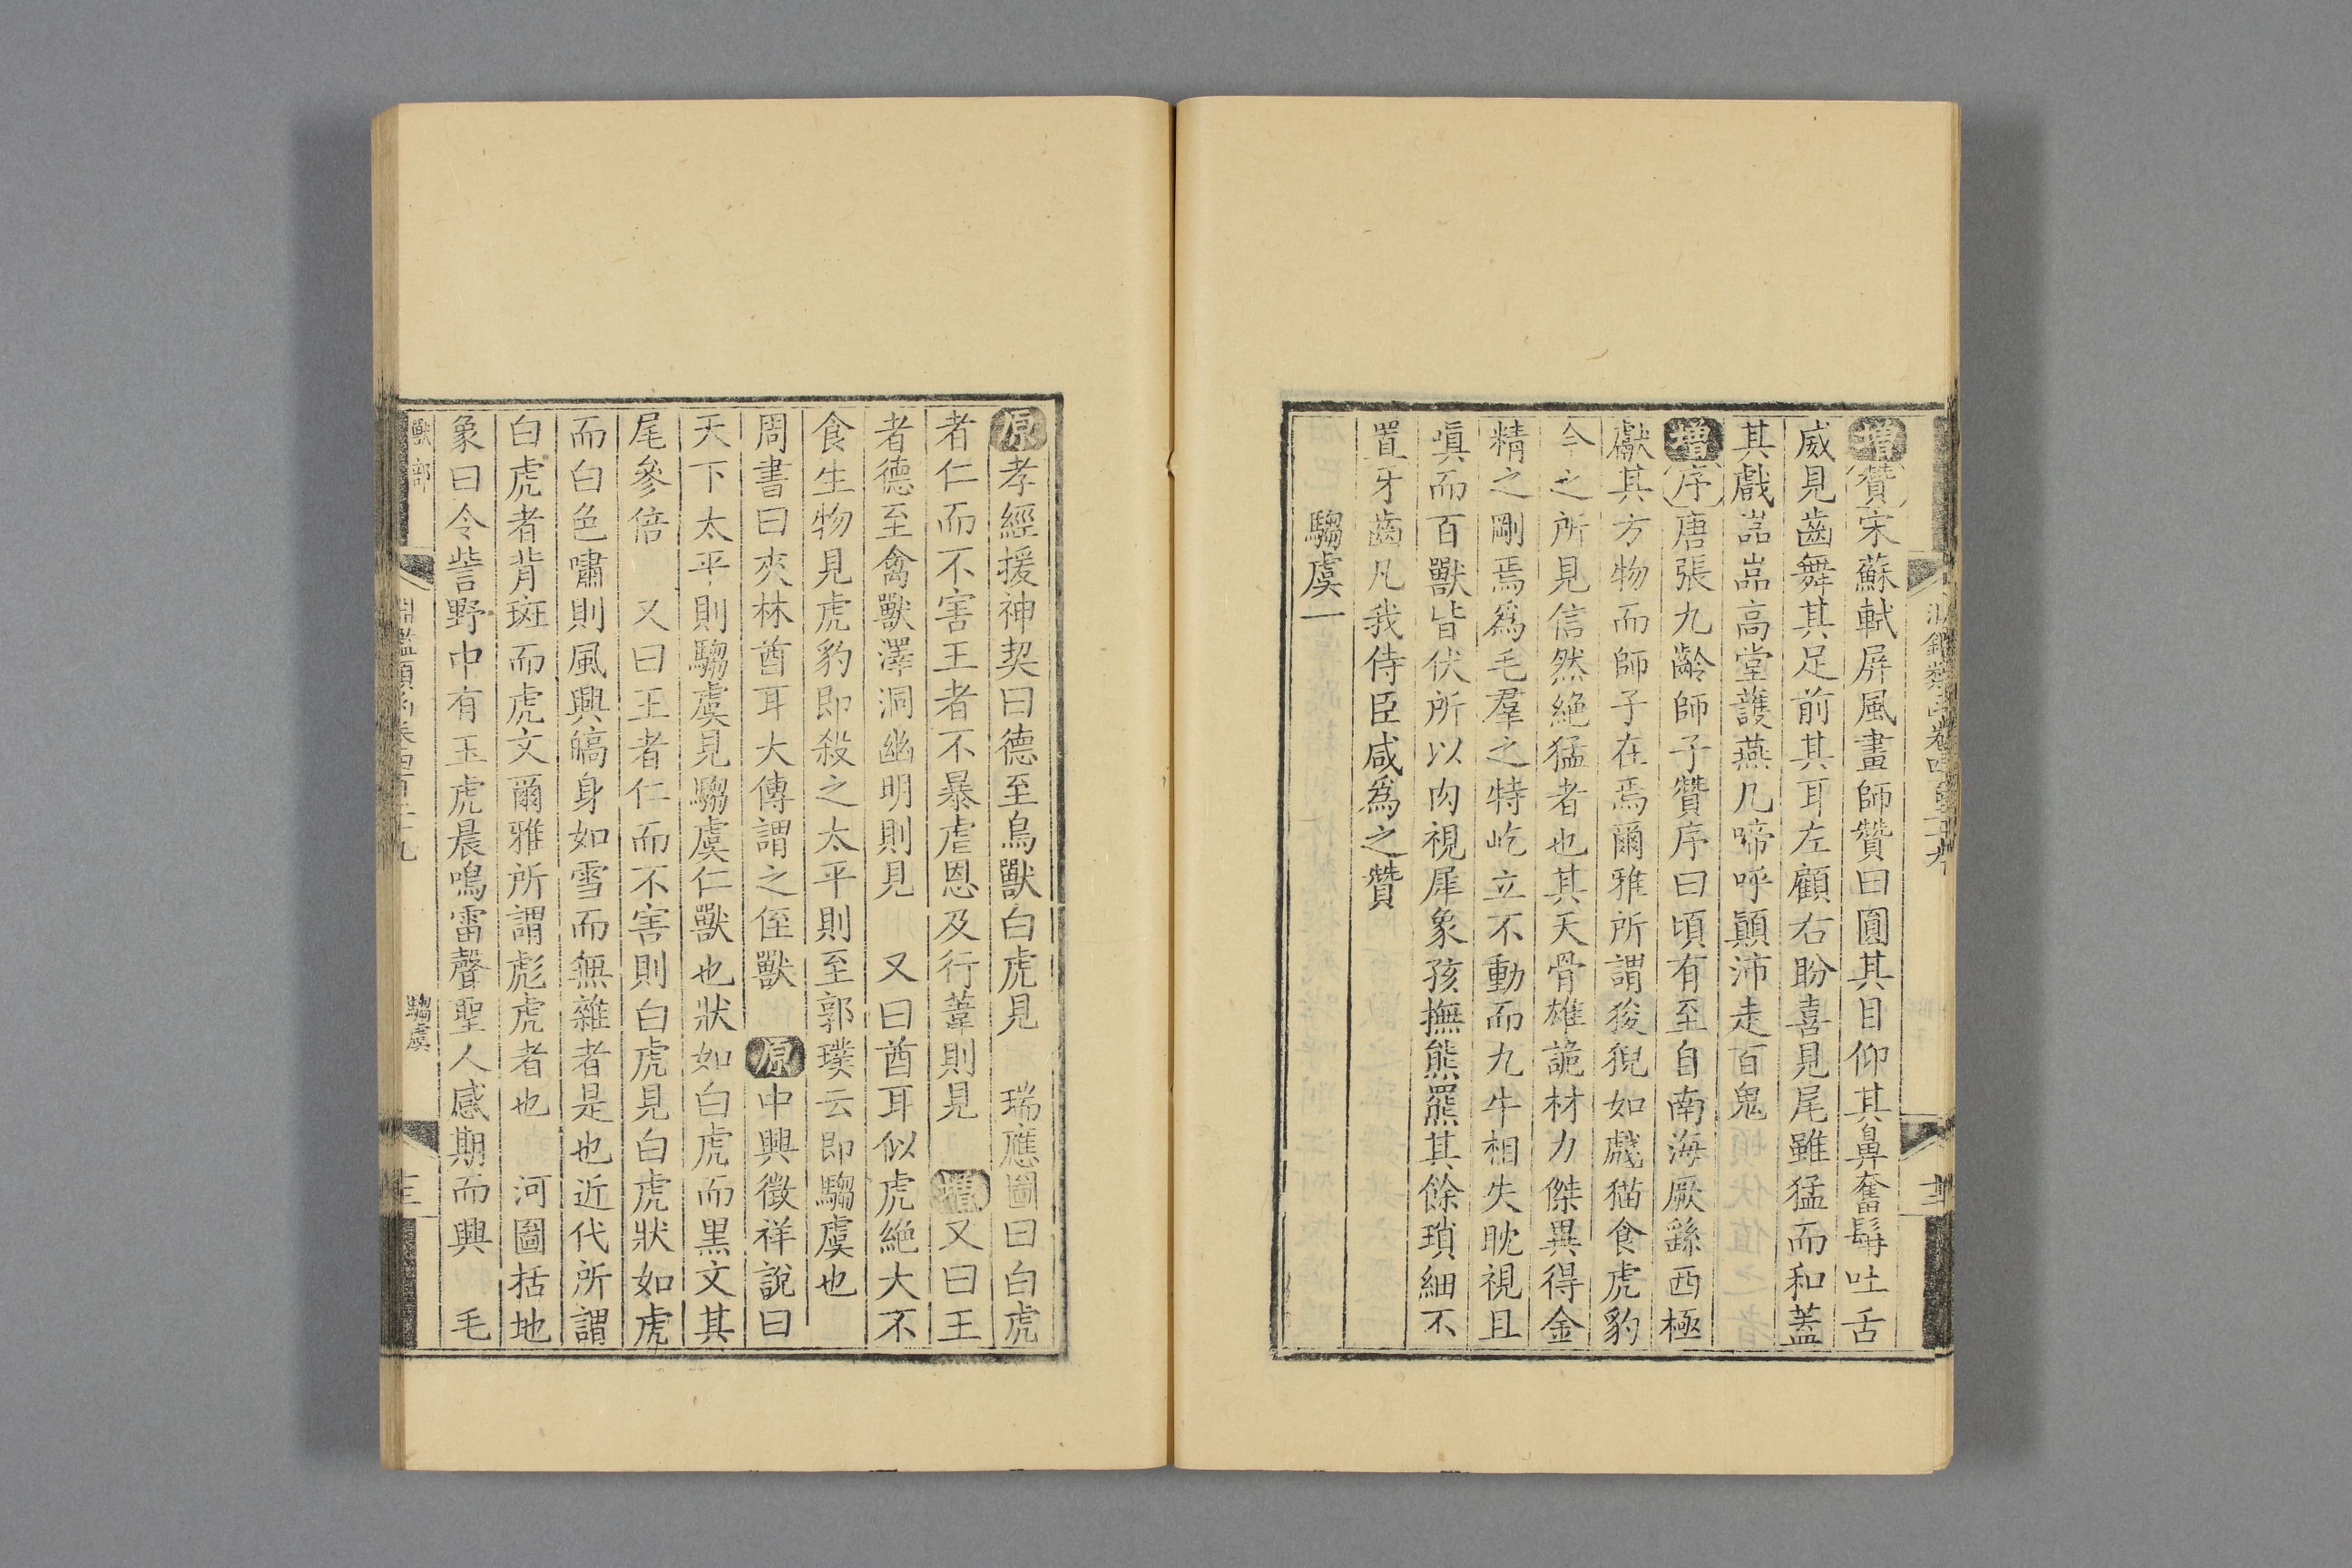 增贊宋蘇軾屏風畫師贊曰圓其目仰其鼻奮髯吐舌
威見齒舞其足前其耳左顧右盼喜見尾雖猛而和蓋
其戲嵓嵓高堂護燕几啼呼顛沛走百鬼
增序唐張九齡師子贊序曰頃有至自南海厥繇西極
獻其方物而師子在焉爾雅所謂狻猊如虥猫食虎豹
今之所見信然絶猛者也其天骨雄詭材力傑異得金
精之剛焉爲毛羣之特屹立不動而九牛相失眈視且
嗔而百獸皆伏所以肉視犀象孩撫熊羆其餘瑣細不
置牙齒凡我侍臣咸爲之贊
騶虞一
原孝經援神契曰德至鳥獸白虎見 瑞應圖曰白虎
者仁而不害王者不暴虐恩及行葦則見 增又曰王
者德至禽獸澤洞幽明則見 又曰酋耳似虎絶大不
食生物見虎豹即殺之太平則至郭璞云即騶虞也
周書曰夾林酋耳大傳謂之侄獸 原中興徵祥說曰
天下太平則騶虞見騶虞仁獸也狀如白虎而黑文其
尾參倍 又曰王者仁而不害則白虎見白虎狀如虎
而白色嘯則風興皜身如雪而無雜者是也近代所謂
白虎者背斑而虎文爾雅所謂彪虎者也 河圖括地
象曰令訾野中有玉虎晨鳴雷聲聖人感期而興 毛
獸部
騶虞